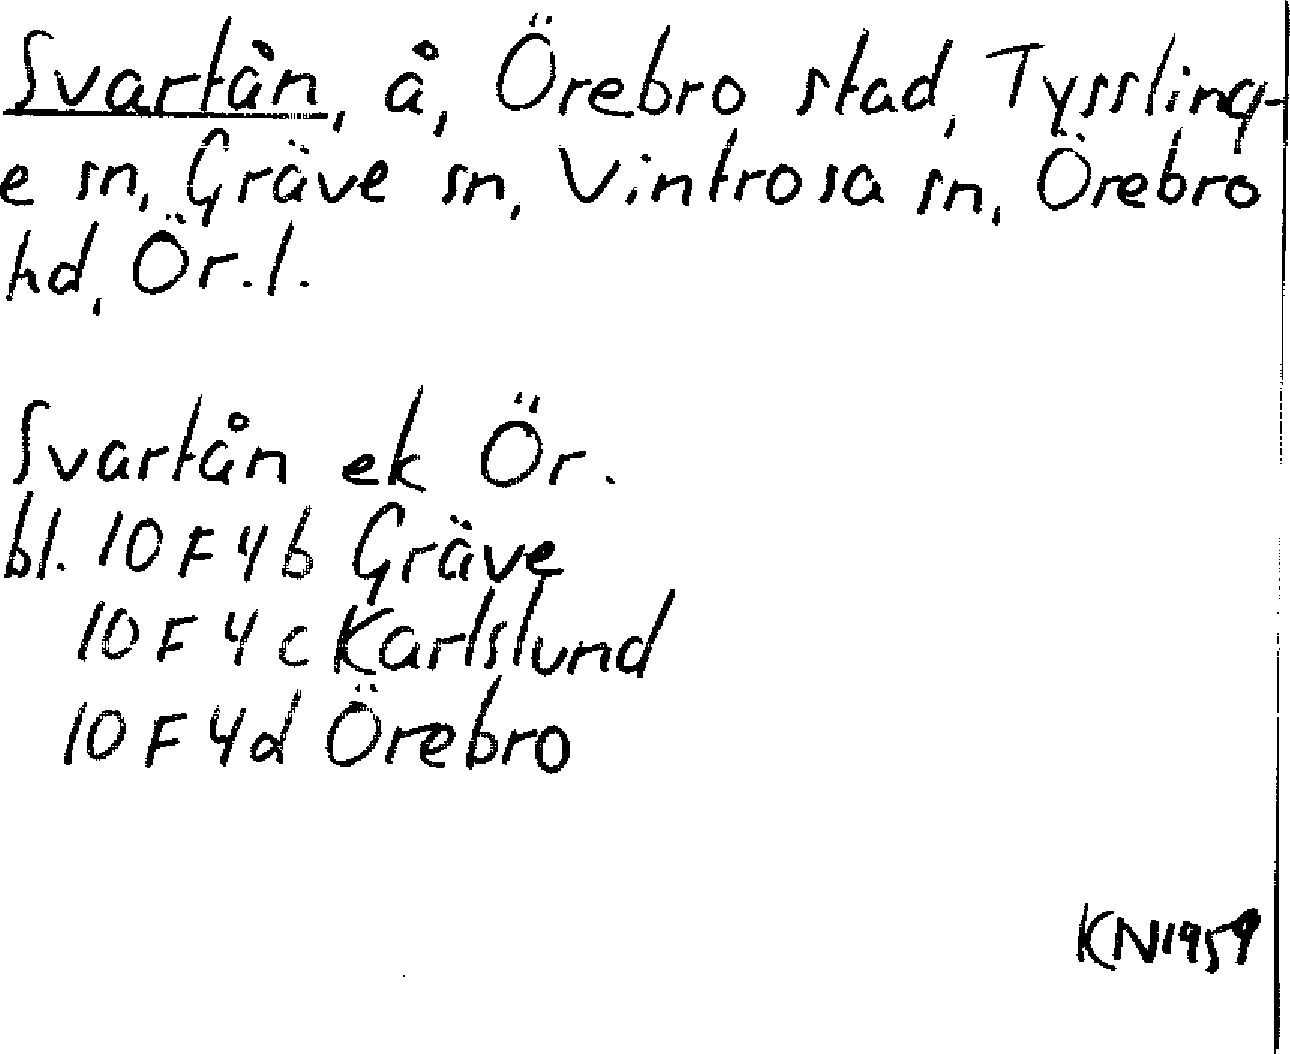 Svartån, å, Örebro stad, Tyssling-
e sn, Gräve sn, Vintrosa sn, Örebro
hd, Ör. l.
Svartån ek Ör.
bl. 10 F 4 b Gräve
10 F 4 c Karlslund
10 F 4 d Örebro
KN 1959